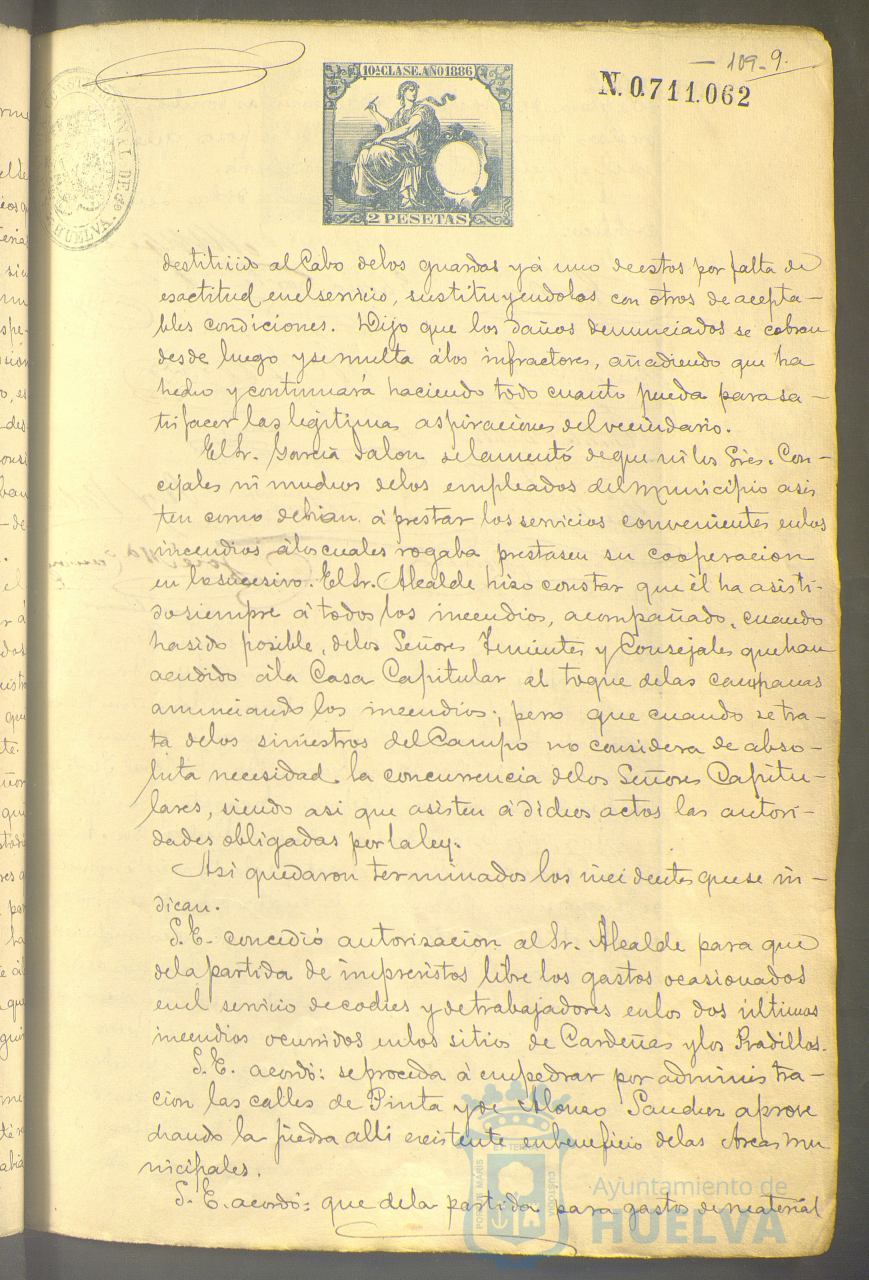 109-9.
10ª CLASE. AÑO 1886
N. 0.711.062
2 PESETAS
HUELVA
destituido al Cabo delos guardas y á uno deestos por falta de
esactitud enelservicio, sustituyendolos con otros de acepta-
bles condiciones. Dijo que los daños denunciados se cobran
desde luego y semulta álos infractores, añadiendo que ha
hecho y continuará haciendo todo cuanto pueda para sa-
tisfacer las legitimas aspiraciones delvecindario.
El Sr. García Jalon selamentó deque nilos Sres. Con-
cejales ni muchos delos empleados del municipio asis
ten como debian á prestar los servicios convenientes enlos
incendios álos cuales rogaba prestasen su cooperacion
en losucesivo. El Sr. Alcalde hizo constar que él ha asisti-
do siempre á todos los incendios, acompañado, cuando
hasido posible, delos Señores Tenientes y Consejales quehan
acudido ála Casa Capitular al toque delas campanas
anunciando los incendios; pero que cuando se tra-
ta delos siniestros del Campo no considera de abso-
luta necesidad la concurrencia delos Señores Capitu-
lares, siendo asi que asisten á dichos actos las autori-
dades obligadas por laley.
Asi quedaron terminados los incidentes quese in-
dican.
S.E. concedió autorizacion al Sr. Alcalde para que
dela partida de imprevistos libre los gastos ocasionados
enel servicio decoches y detrabajadores enlos dos últimos
incendios ocurridos enlos sitios de Cardeñas ylos Pradillos.
S.E. acordó: seproceda á empedrar por administra-
cion las calles de Pinta y de Alonso Sanchez aprove
chando la piedra alli existente enbeneficio delas Arcas mu
nicipales.
S.E. acordó: que dela partida para gastos de material
PORTUS MARIS
ET TERRÆ
CUSTODIA
Ayuntamiento de
HUELVA